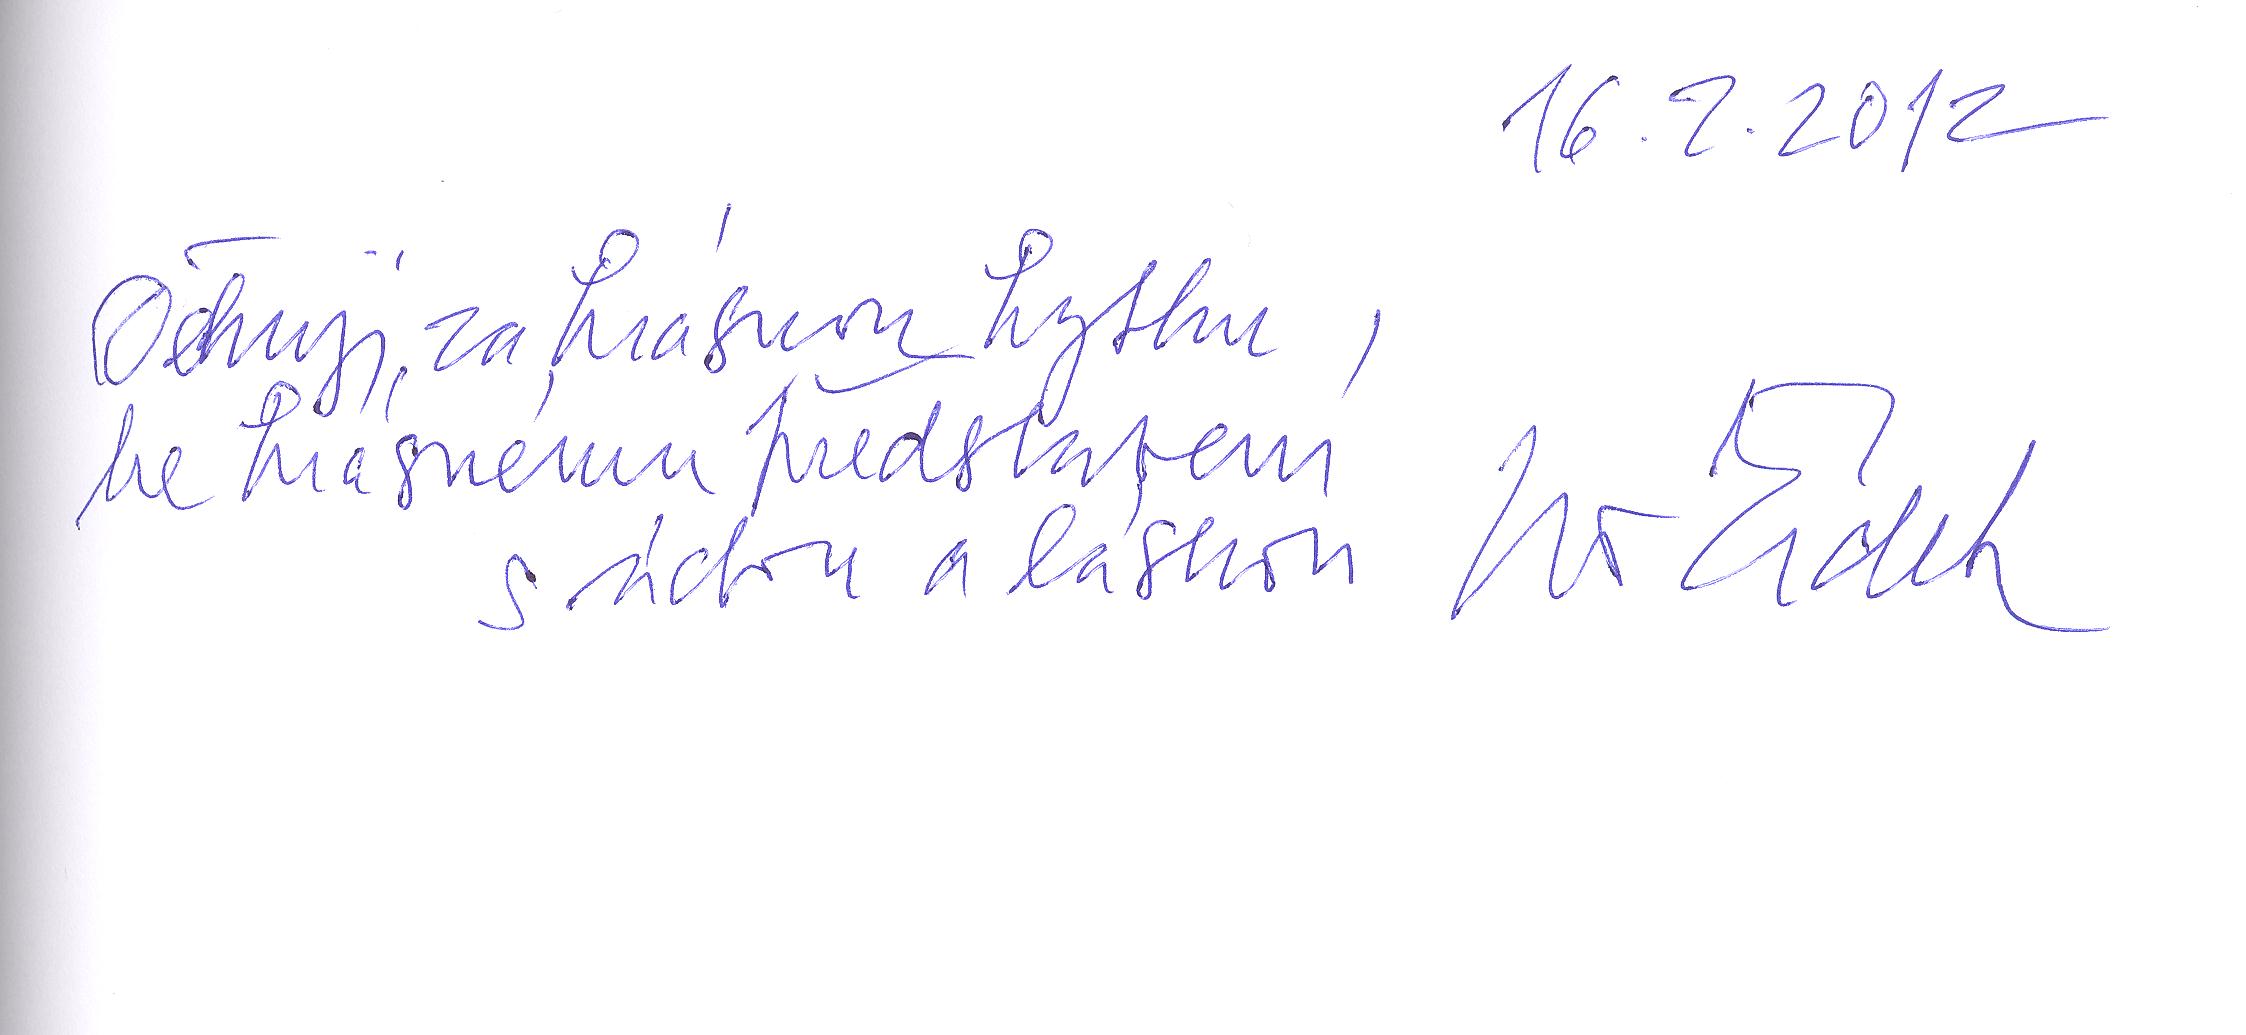 16.2.2012
Děkuji za krásnou kytku,
ke krásnému představení
s úctou a láskou